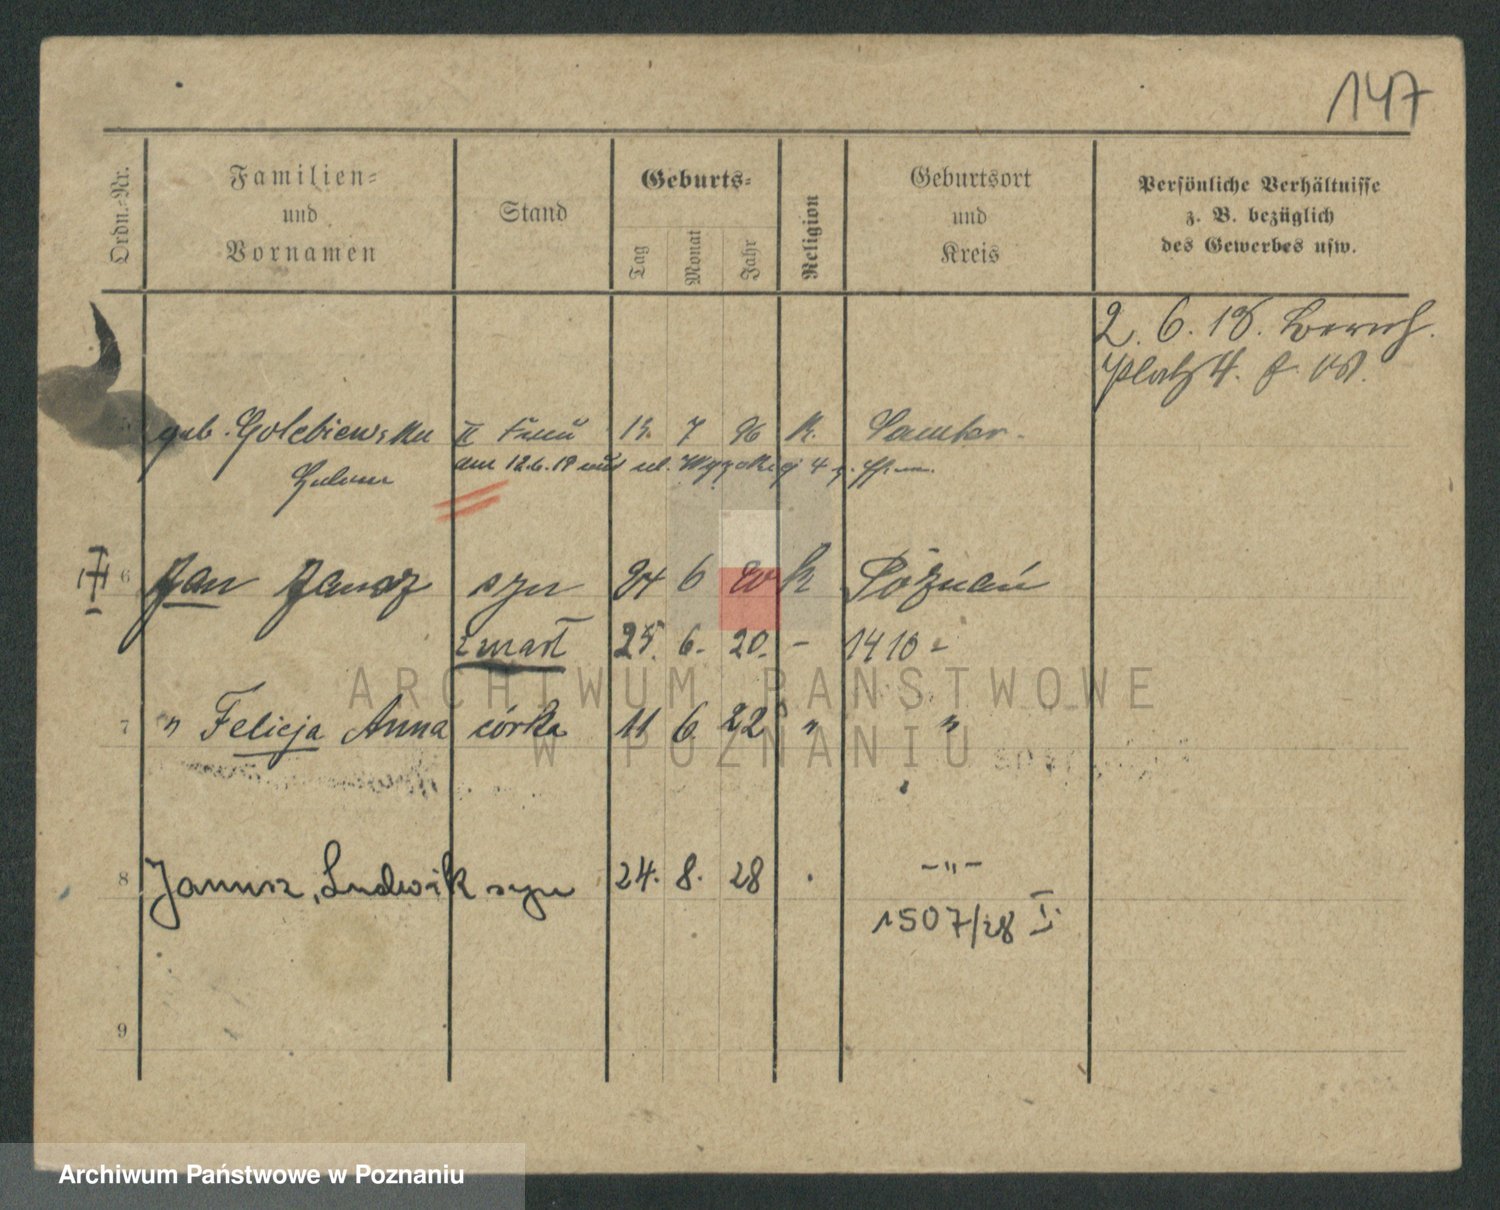 147
Ordn.-Nr.
Familien-
und
Vornamen
Stand
Geburts-
Tag
Monat
Jahr
Religion
Geburtsort
und
Kreis
Persönliche Verhältnisse
z. B. bezüglich
des Gewerbes usw.
2. 6. 18.
Platz 4.
geb. Golebiewska II Frau 13. 7 96 k. Samter.
am 12.6.18 4
6 Jan Janusz syn 24 6 20 k Poznań
zmarł 25. 6. 20. - 1410 -
7 " Felicja Anna córka 11 6 22 " "
8 Janusz, Ludwik syn 24. 8. 28 . -"-
1507/28 I.
9
ARCHIWUM PAŃSTWOWE
W POZNANIU
Archiwum Państwowe w Poznaniu